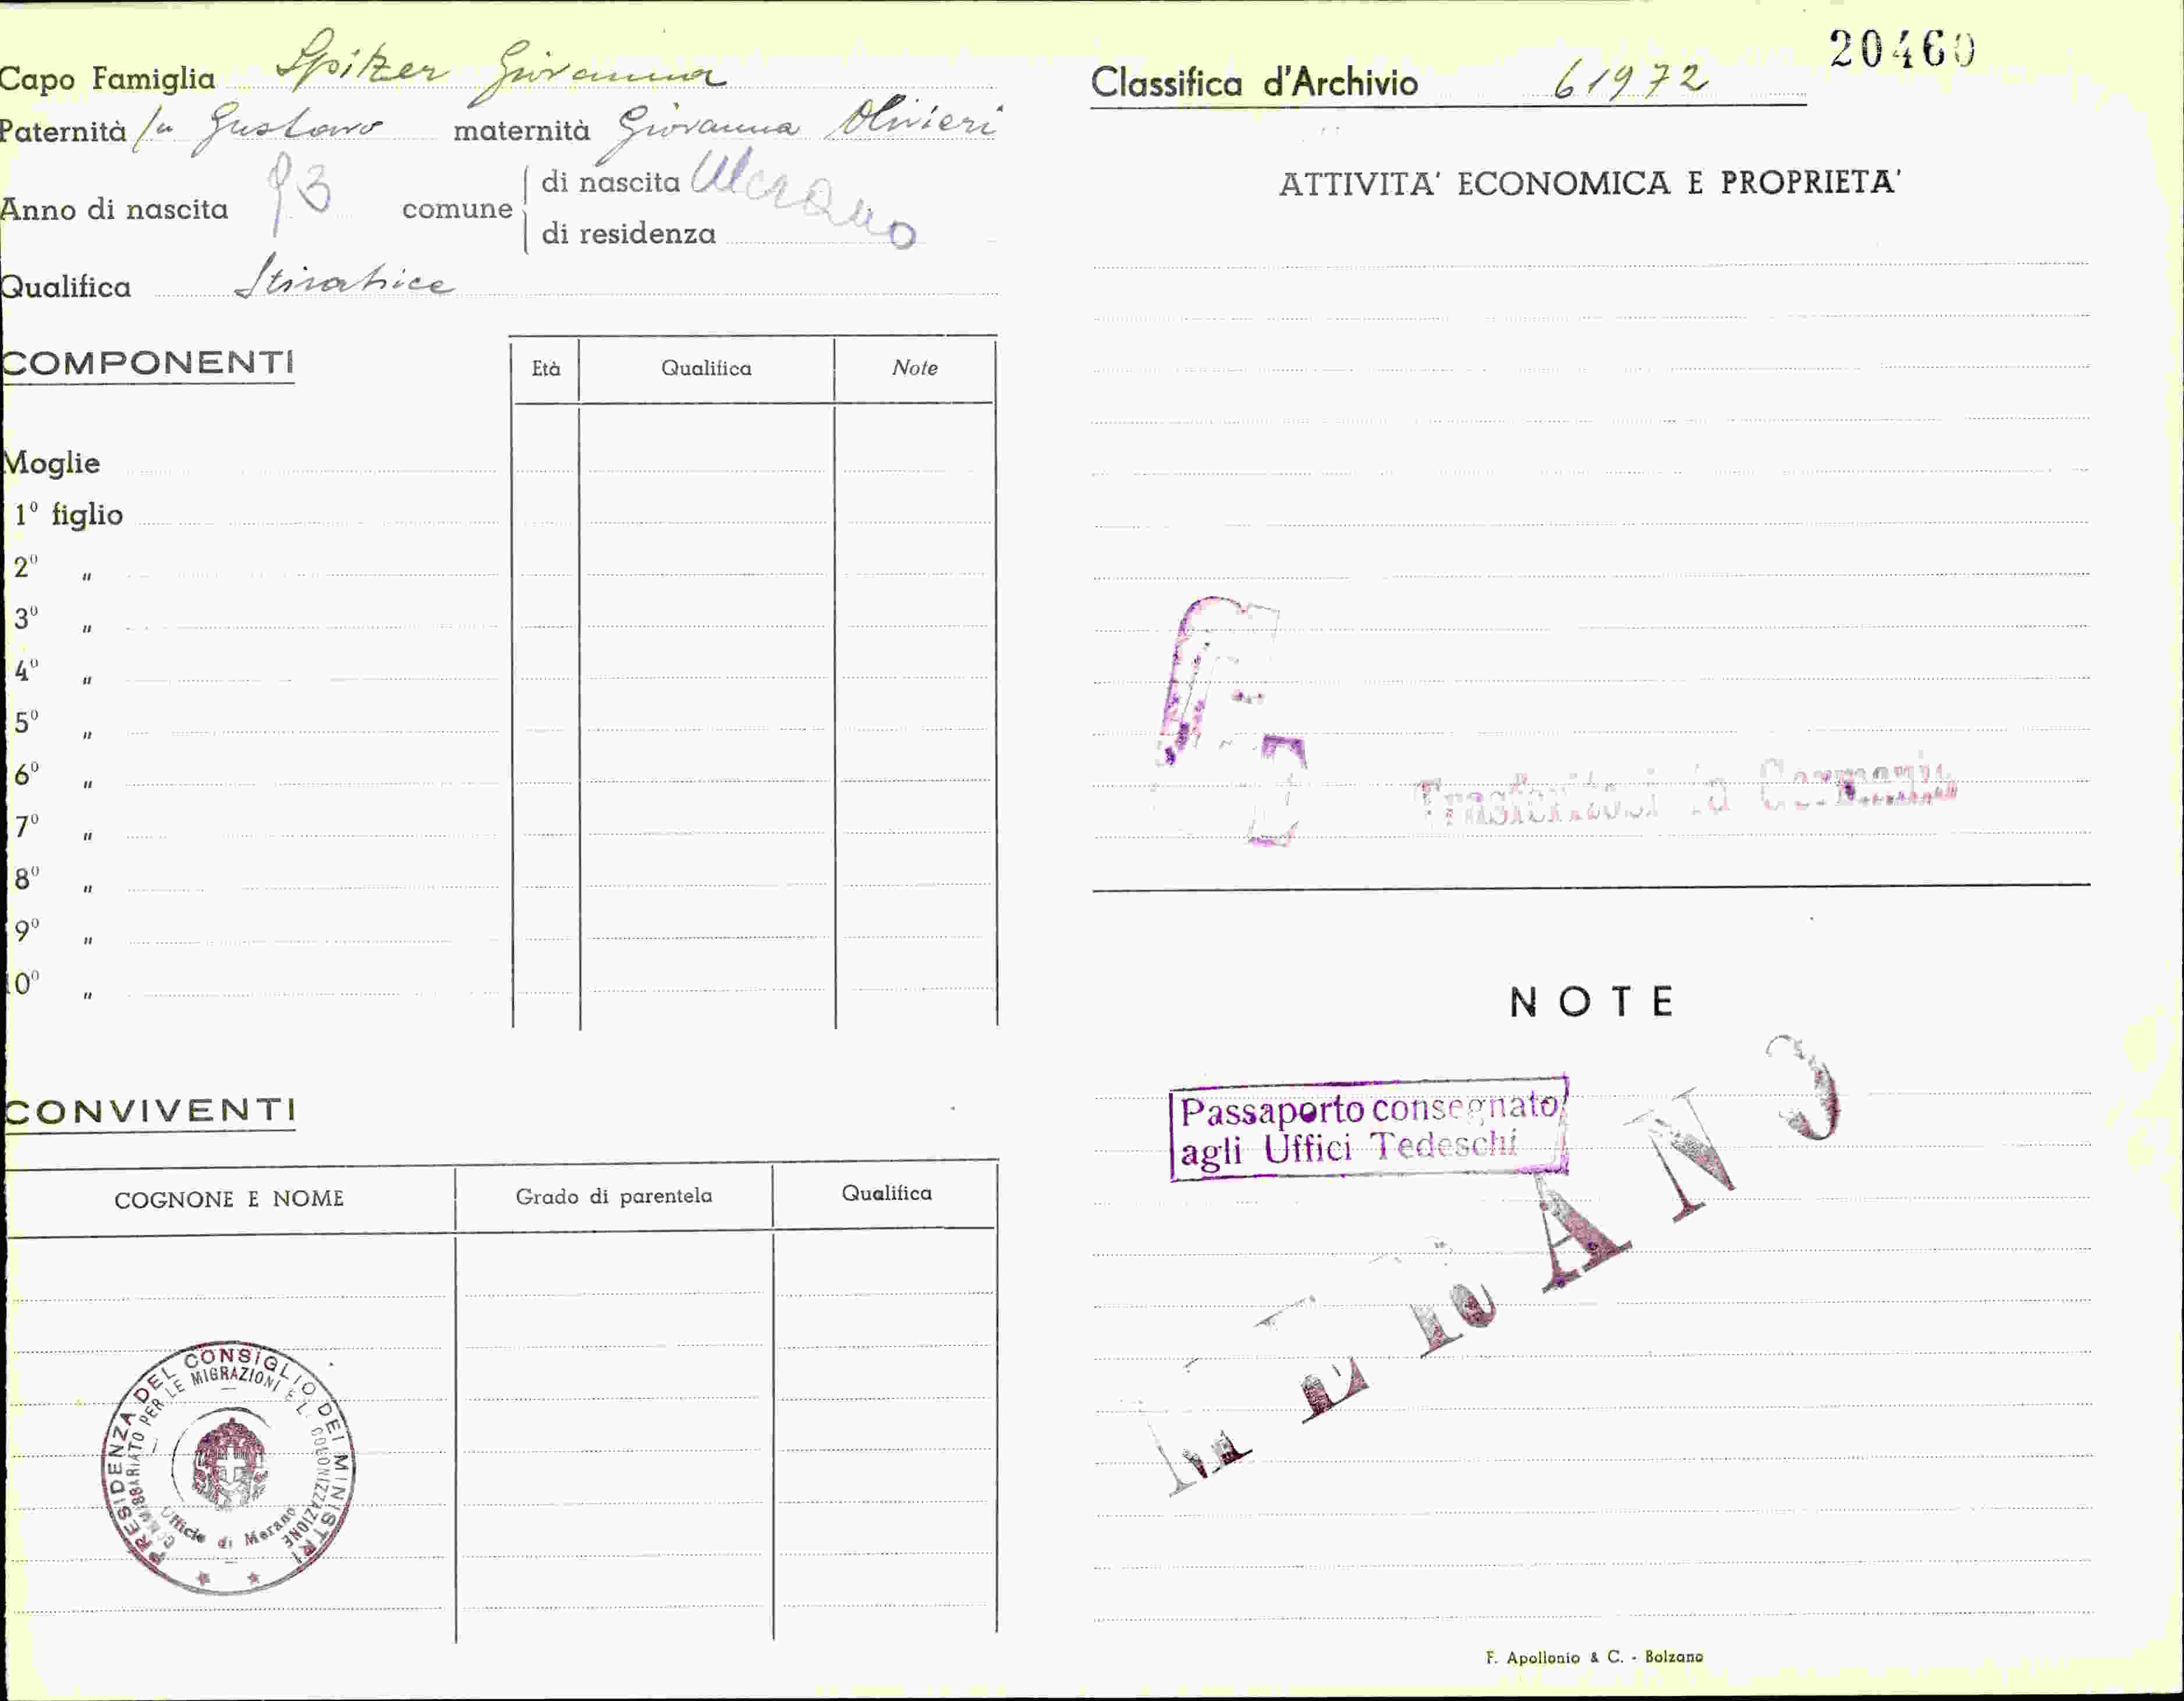 Capo Famiglia Spitzer Giovanna
Paternità fu Gustavo maternità Giovanna Olivieri
Anno di nascita 93 comune di nascita Merano
di residenza
Qualifica Stiratrice
COMPONENTI
Età Qualifica Note
Moglie
1º figlio
2º "
3º "
4º "
5º "
6º "
7º "
8º "
9º "
10º "
CONVIVENTI
COGNONE E NOME Grado di parentela Qualifica
PRESIDENZA DEL CONSIGLIO DEI MINISTRI
COMMISSARIATO PER LE MIGRAZIONI E L. COLONIZZAZIONE
Ufficio di Merano
20460
Classifica d'Archivio 61972
ATTIVITA' ECONOMICA E PROPRIETA'
Trasferitosi in Germania
NOTE
Passaporto consegnato
agli Uffici Tedeschi
MERANO
F. Apollonio & C. - Bolzano